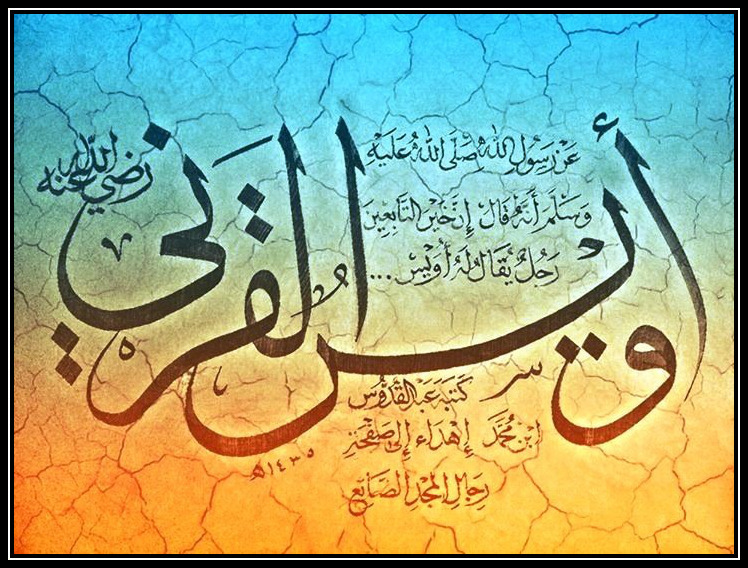 أويس القرني
رضي الله عنه
عَنْ رَسُولِ اللهِ صَلَّى اللهُ عَلَيْهِ
وَسَلَّمَ أَنَّهُ قَالَ إِنَّ خَيْرَ التَّابِعِينَ
رَجُلٌ يُقَالُ لَهُ أُوَيْسٌ...
كَتَبَهُ عَبْدُ الْقُدُّوسِ
ابْنُ مُحَمَّد إِهْدَاء إِلَى صَفْحَةِ
رِجَالِ الْمَجْدِ الضَّائِعِ
١٤٣٥هـ